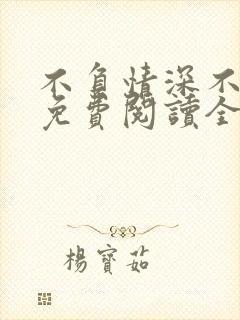 不負情深不
免費閱讀全
楊寶茹